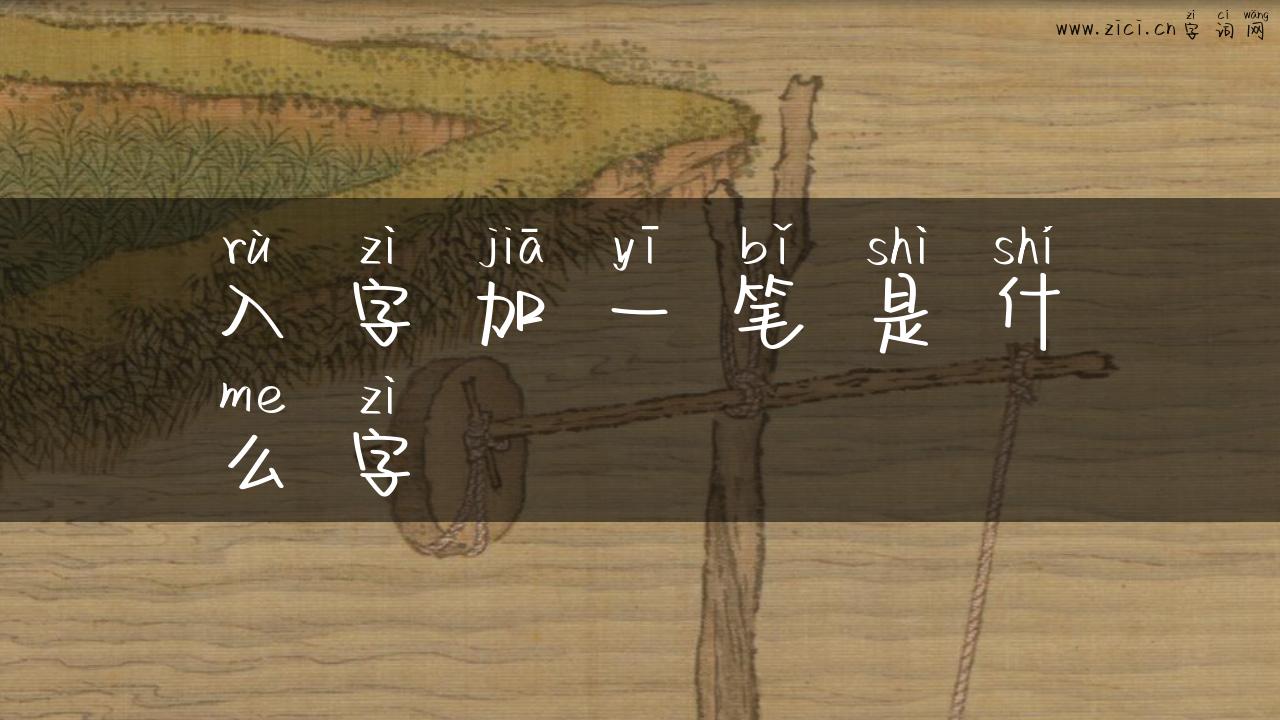 zì cí wǎng
www.zici.cn 字词网
rù zì jiā yī bǐ shì shí
入字加一笔是什
me zì
么字